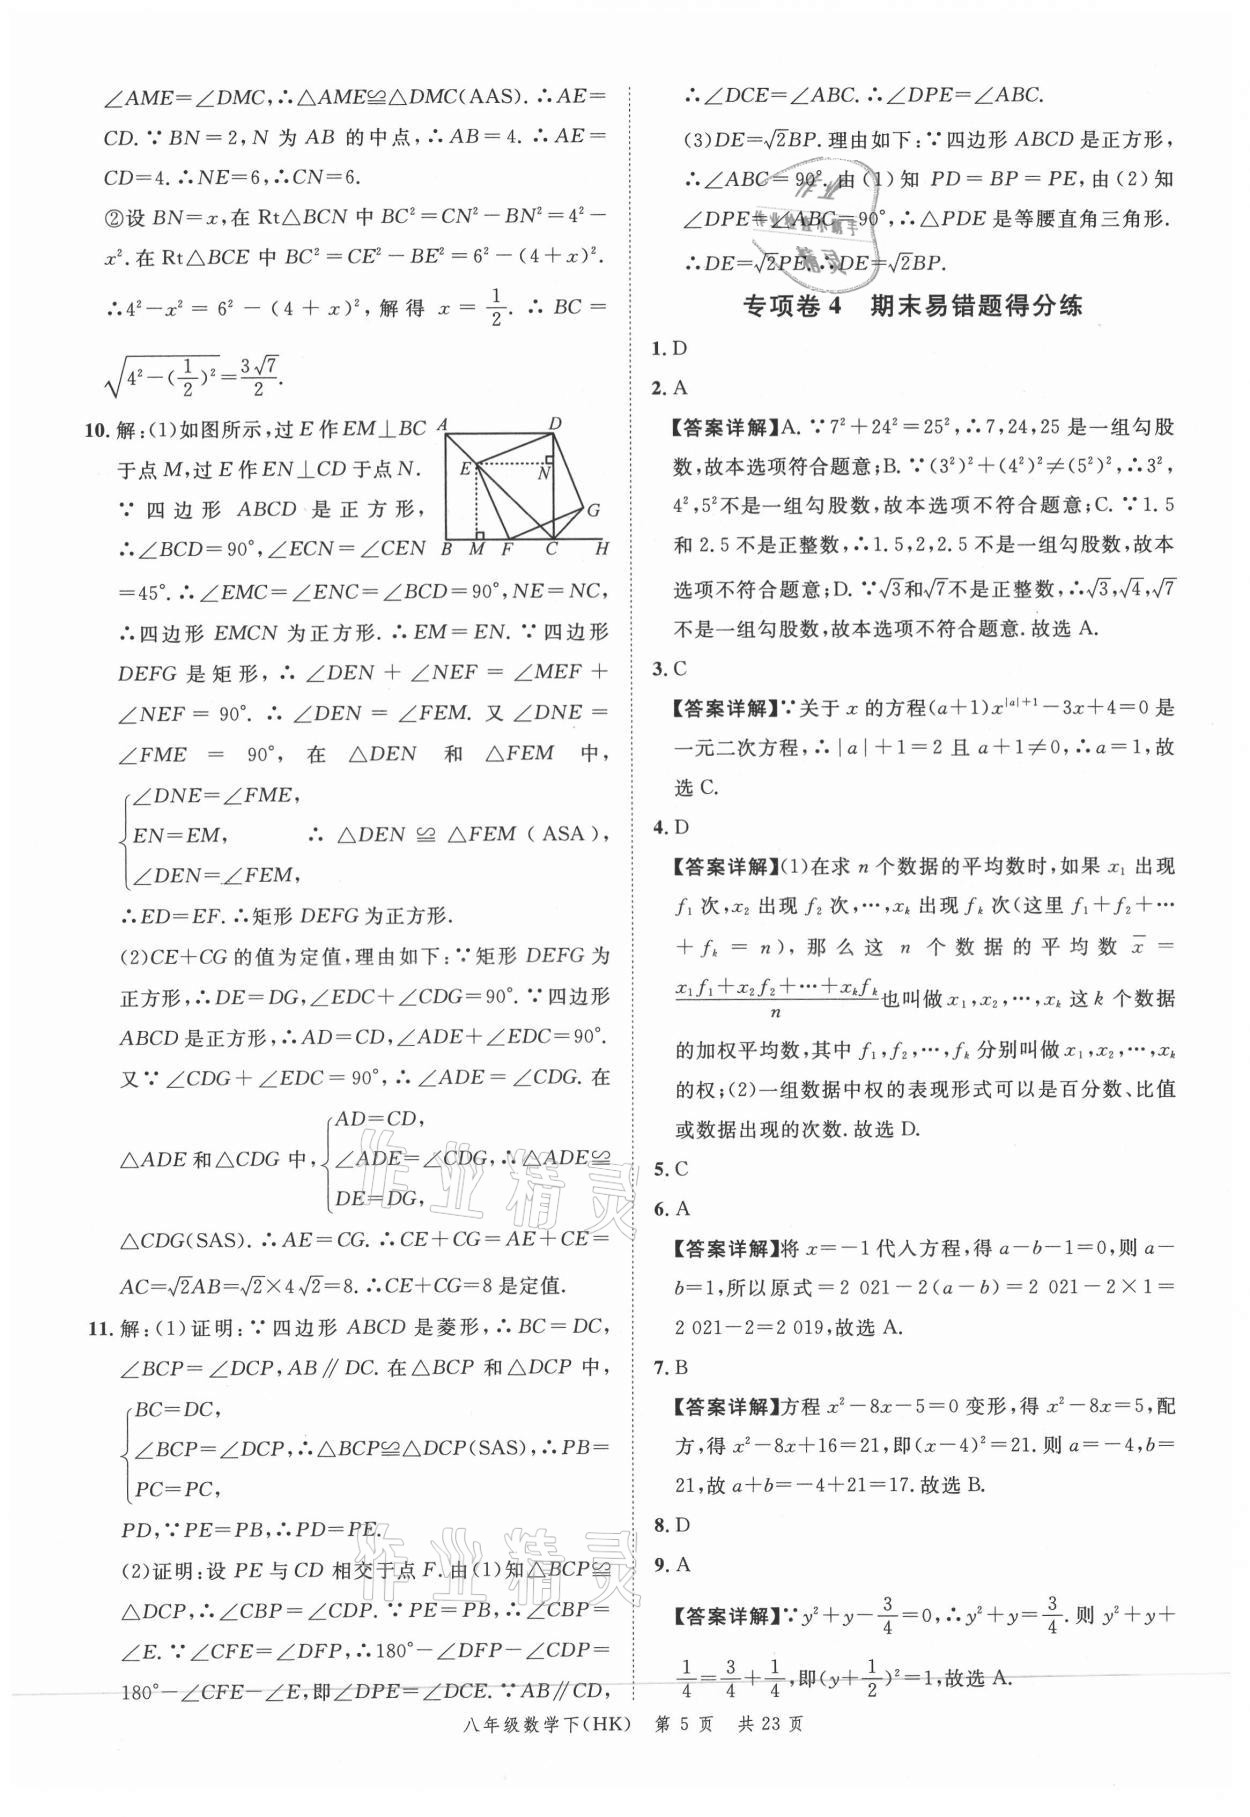 ∠AME=∠DMC,∴△AME≌△DMC(AAS).∴AE=
CD.∵BN=2,N 为 AB 的中点,∴AB=4.∴AE=
CD=4.∴NE=6,∴CN=6.
②设 BN=x,在 Rt△BCN 中 BC²=CN²-BN²=4²-
x².在 Rt△BCE 中 BC²=CE²-BE²=6²-(4+x)².
∴4²-x²=6²-(4+x)²,解得 x=1/2.∴BC=
√(4²-(1/2)²)=3√7/2.
10.解:(1)如图所示,过 E 作 EM⊥BC
于点 M,过 E 作 EN⊥CD 于点 N.
∵四边形 ABCD 是正方形,
∴∠BCD=90°,∠ECN=∠CEN
=45°.∴∠EMC=∠ENC=∠BCD=90°,NE=NC,
∴四边形 EMCN 为正方形.∴EM=EN.∵四边形
DEFG 是矩形,∴∠DEN+∠NEF=∠MEF+
∠NEF=90°.∴∠DEN=∠FEM.又∠DNE=
∠FME=90°,在△DEN 和△FEM 中,
∠DNE=∠FME,
EN=EM, ∴△DEN≌△FEM(ASA),
∠DEN=∠FEM,
∴ED=EF.∴矩形 DEFG 为正方形.
(2)CE+CG 的值为定值,理由如下:∵矩形 DEFG 为
正方形,∴DE=DG,∠EDC+∠CDG=90°.∵四边形
ABCD 是正方形,∴AD=CD,∠ADE+∠EDC=90°.
又∵∠CDG+∠EDC=90°,∴∠ADE=∠CDG.在
AD=CD,
△ADE 和△CDG 中,∠ADE=∠CDG,∴△ADE≌
DE=DG,
△CDG(SAS).∴AE=CG.∴CE+CG=AE+CE=
AC=√2AB=√2×4√2=8.∴CE+CG=8 是定值.
11.解:(1)证明:∵四边形 ABCD 是菱形,∴BC=DC,
∠BCP=∠DCP,AB∥DC.在△BCP 和△DCP 中,
BC=DC,
∠BCP=∠DCP,∴△BCP≌△DCP(SAS),∴PB=
PC=PC,
PD,∵PE=PB,∴PD=PE.
(2)证明:设 PE 与 CD 相交于点 F.由(1)知△BCP≌
△DCP,∴∠CBP=∠CDP.∵PE=PB,∴∠CBP=
∠E.∵∠CFE=∠DFP,∴180°-∠DFP-∠CDP=
180°-∠CFE-∠E,即∠DPE=∠DCE.∵AB∥CD,
A D
E N
G
B M F C H
∴∠DCE=∠ABC.∴∠DPE=∠ABC.
(3)DE=√2BP.理由如下:∵四边形 ABCD 是正方形,
∴∠ABC=90°.由(1)知 PD=BP=PE,由(2)知
∠DPE=∠ABC=90°,∴△PDE 是等腰直角三角形.
∴DE=√2PE.∴DE=√2BP.
专项卷 4 期末易错题得分练
1.D
2.A
【答案详解】A.∵7²+24²=25²,∴7,24,25 是一组勾股
数,故本选项符合题意;B.∵(3²)²+(4²)²≠(5²)²,∴3²,
4²,5²不是一组勾股数,故本选项不符合题意;C.∵1.5
和 2.5 不是正整数,∴1.5,2,2.5 不是一组勾股数,故本
选项不符合题意;D.∵√3和√7不是正整数,∴√3,√4,√7
不是一组勾股数,故本选项不符合题意.故选 A.
3.C
【答案详解】∵关于 x 的方程(a+1)x^{|a|+1}-3x+4=0 是
一元二次方程,∴|a|+1=2 且 a+1≠0,∴a=1,故
选 C.
4.D
【答案详解】(1)在求 n 个数据的平均数时,如果 x₁ 出现
f₁ 次,x₂ 出现 f₂ 次,…,xₖ 出现 fₖ 次(这里 f₁+f₂+…
+fₖ=n),那么这 n 个数据的平均数 x̄=
(x₁f₁+x₂f₂+…+xₖfₖ)/n 也叫做 x₁,x₂,…,xₖ 这 k 个数据
的加权平均数,其中 f₁,f₂,…,fₖ 分别叫做 x₁,x₂,…,xₖ
的权;(2)一组数据中权的表现形式可以是百分数、比值
或数据出现的次数.故选 D.
5.C
6.A
【答案详解】将 x=-1 代人方程,得 a-b-1=0,则 a-
b=1,所以原式=2 021-2(a-b)=2 021-2×1=
2 021-2=2 019,故选 A.
7.B
【答案详解】方程 x²-8x-5=0 变形,得 x²-8x=5,配
方,得 x²-8x+16=21,即(x-4)²=21.则 a=-4,b=
21,故 a+b=-4+21=17.故选 B.
8.D
9.A
【答案详解】∵y²+y-3/4=0,∴y²+y=3/4.则 y²+y+
1/4=3/4+1/4,即(y+1/2)²=1,故选 A.
八年级数学下(HK) 第 5 页 共 23 页
作业
作业检查小帮手
精灵
作业精灵
作业精灵